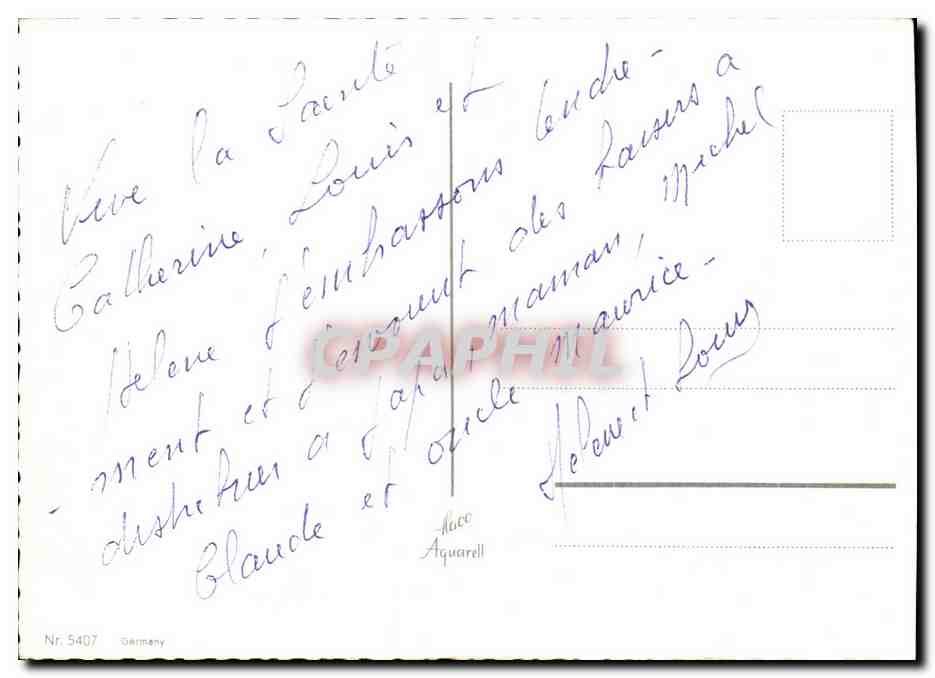 Vive la Sainte
Catherine, Louis et
Hélène t'embrassons tendre-
-ment et t'envoient des baisers a
distribuer a papa maman, Michel
Claude et oncle Maurice-
Hélène et Louis
CPAPHIL
Haco
Aquarell
Nr. 5407 Germany